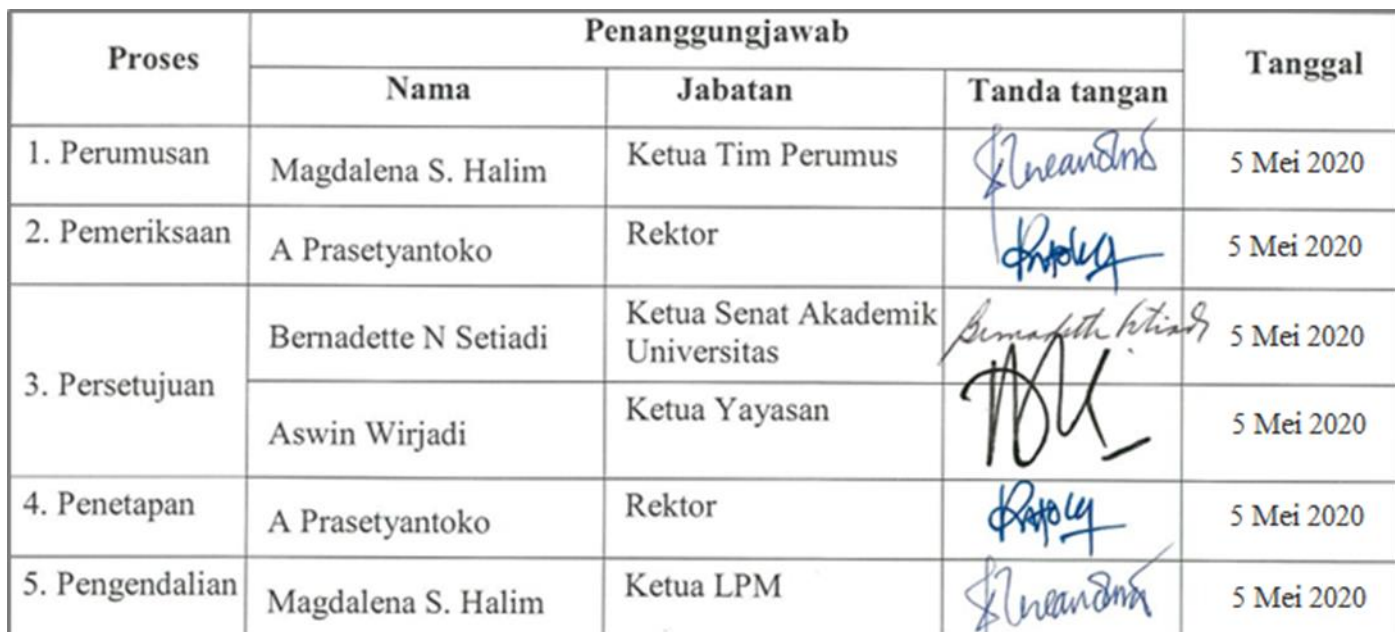 Proses Penanggungjawab Tanggal
Nama Jabatan Tanda tangan
1. Perumusan Magdalena S. Halim Ketua Tim Perumus 5 Mei 2020
2. Pemeriksaan A Prasetyantoko Rektor 5 Mei 2020
3. Persetujuan Bernadette N Setiadi Ketua Senat Akademik
Universitas 5 Mei 2020
Aswin Wirjadi Ketua Yayasan 5 Mei 2020
4. Penetapan A Prasetyantoko Rektor 5 Mei 2020
5. Pengendalian Magdalena S. Halim Ketua LPM 5 Mei 2020